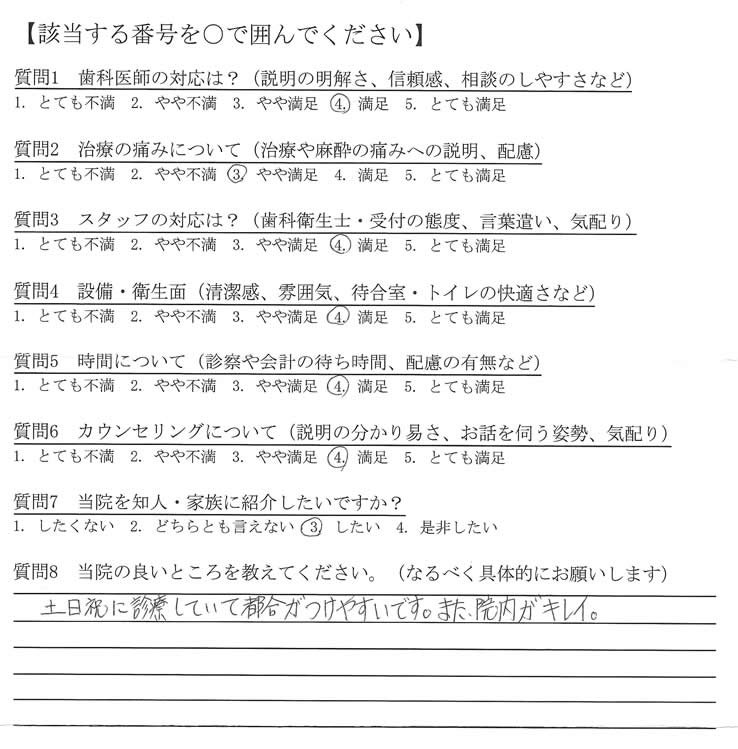 【該当する番号を○で囲んでください】
質問1 歯科医師の対応は？（説明の明解さ、信頼感、相談のしやすさなど）
1. とても不満 2. やや不満 3. やや満足 4. 満足 5. とても満足
質問2 治療の痛みについて（治療や麻酔の痛みへの説明、配慮）
1. とても不満 2. やや不満 3. やや満足 4. 満足 5. とても満足
質問3 スタッフの対応は？（歯科衛生士・受付の態度、言葉遣い、気配り）
1. とても不満 2. やや不満 3. やや満足 4. 満足 5. とても満足
質問4 設備・衛生面（清潔感、雰囲気、待合室・トイレの快適さなど）
1. とても不満 2. やや不満 3. やや満足 4. 満足 5. とても満足
質問5 時間について（診察や会計の待ち時間、配慮の有無など）
1. とても不満 2. やや不満 3. やや満足 4. 満足 5. とても満足
質問6 カウンセリングについて（説明の分かり易さ、お話を伺う姿勢、気配り）
1. とても不満 2. やや不満 3. やや満足 4. 満足 5. とても満足
質問7 当院を知人・家族に紹介したいですか？
1. したくない 2. どちらとも言えない 3. したい 4. 是非したい
質問8 当院の良いところを教えてください。（なるべく具体的にお願いします）
土日祝に診療していて都合がつけやすいです。また、院内がキレイ。